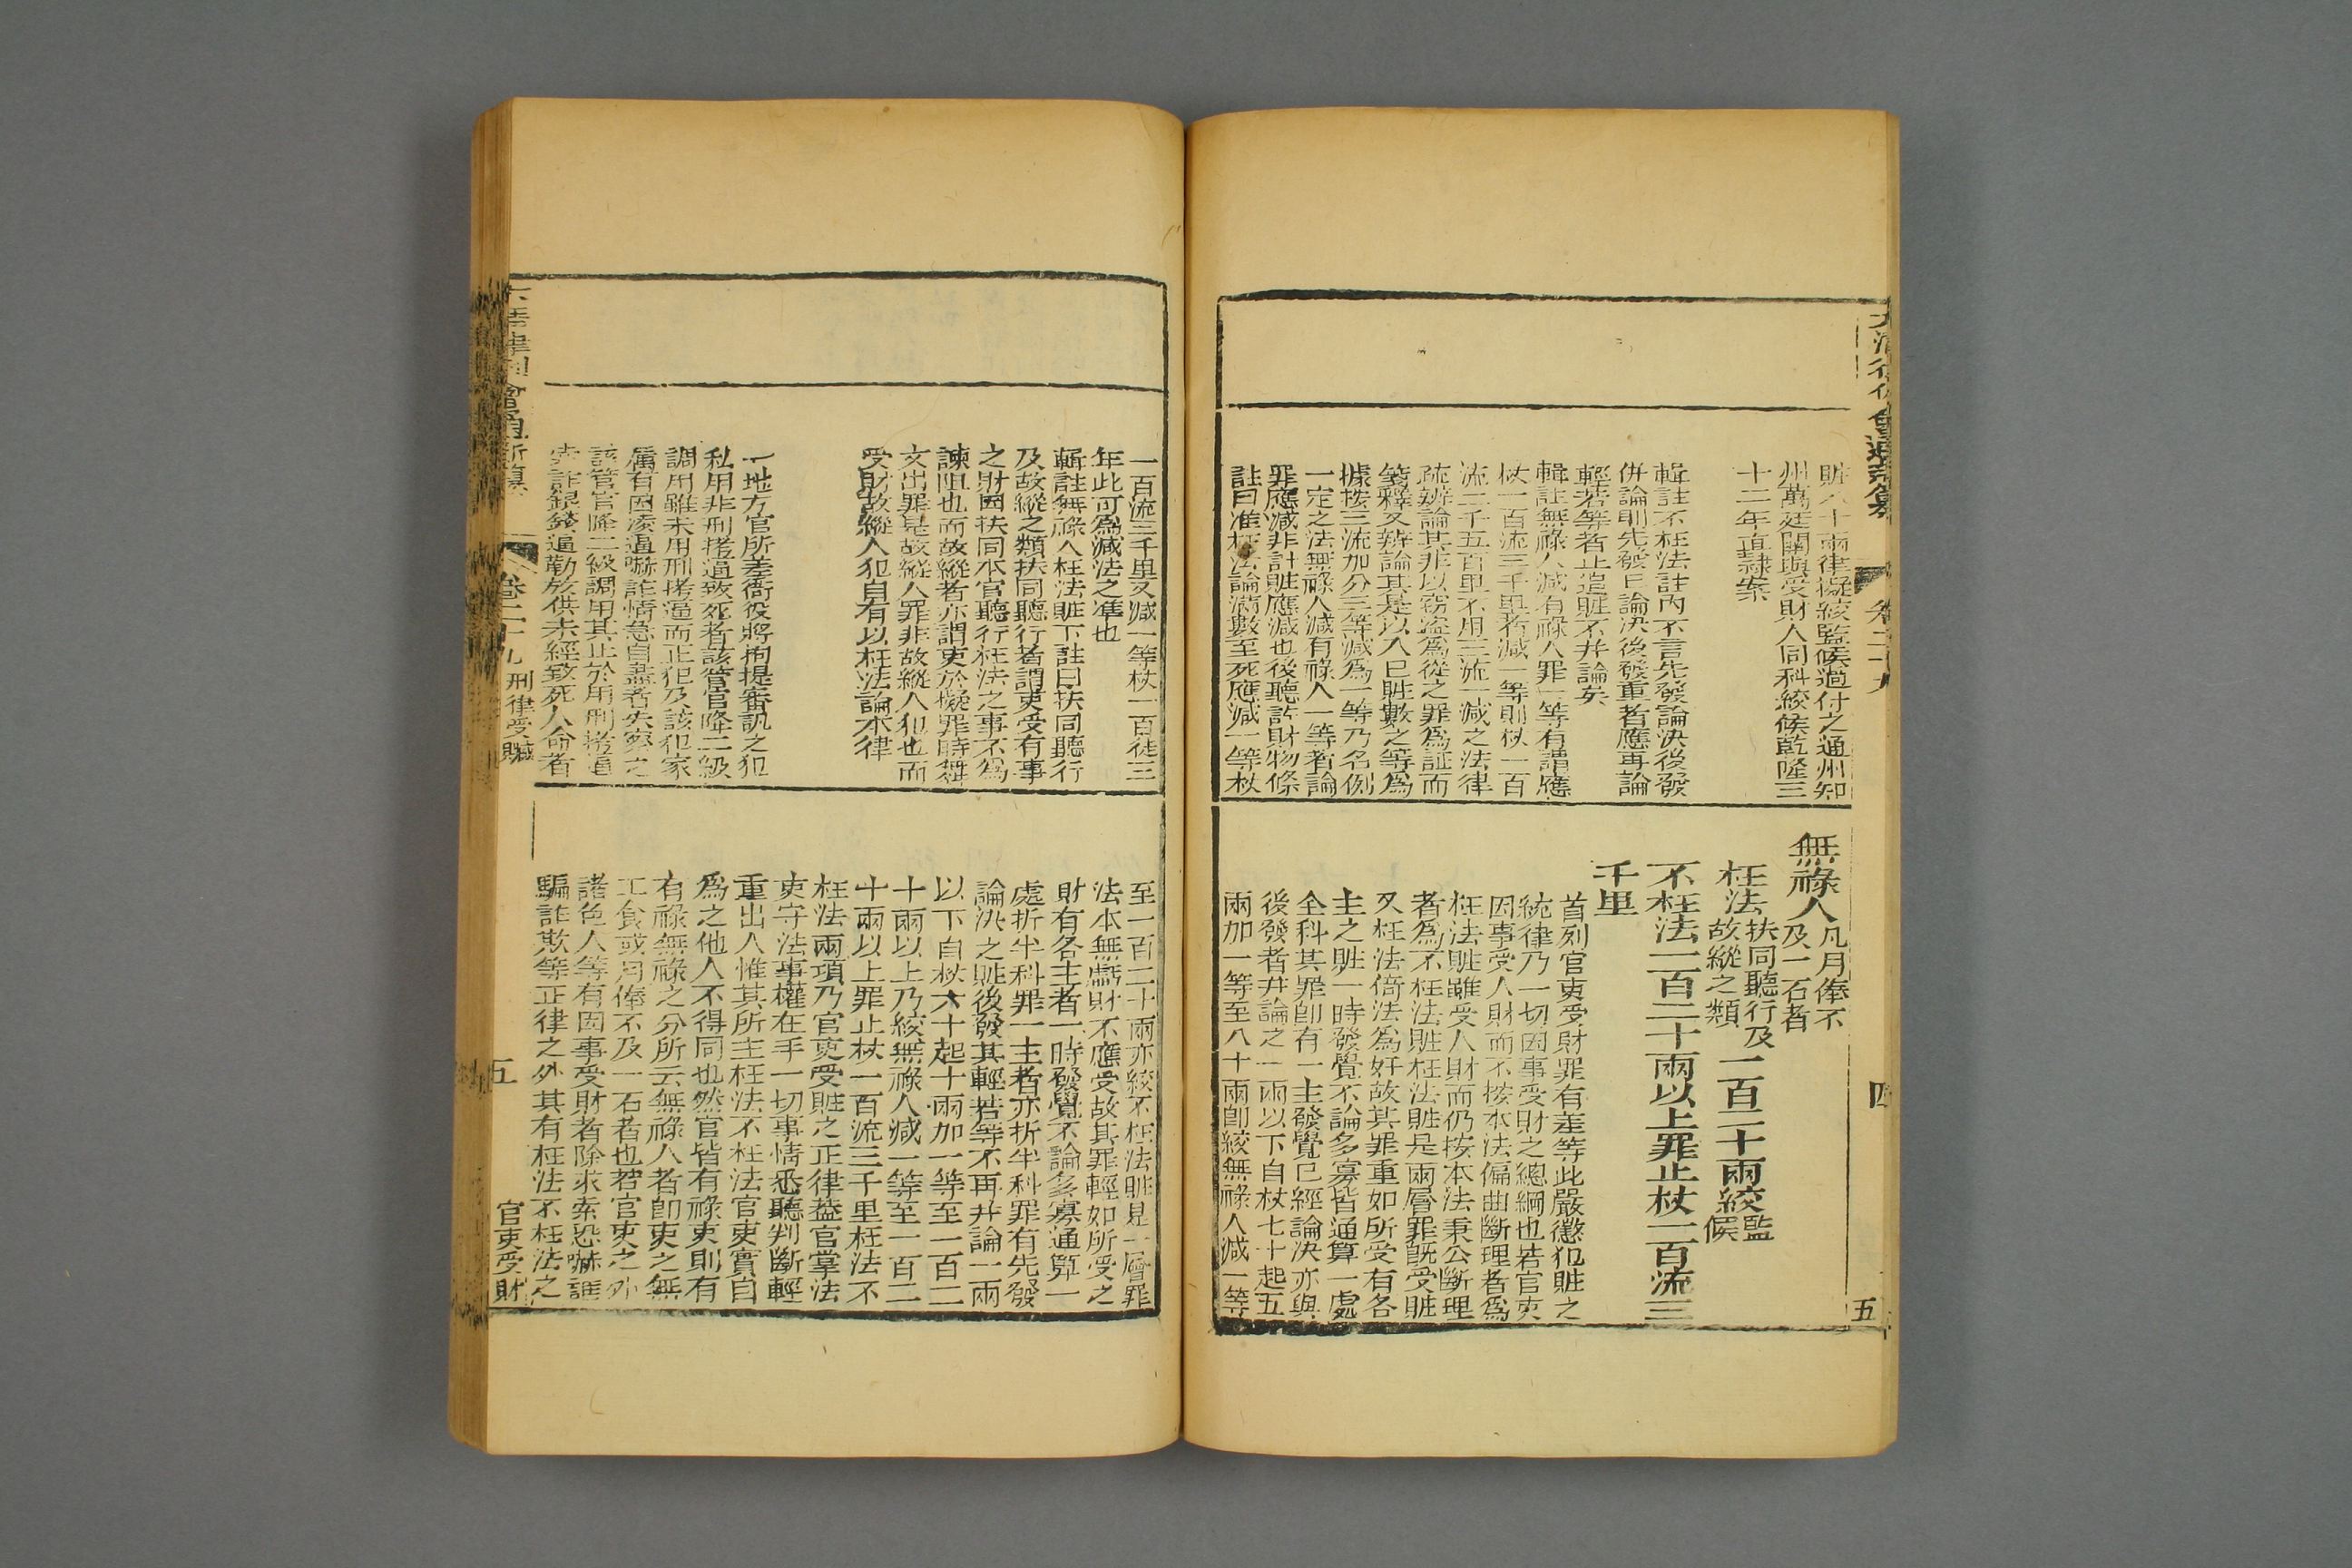 大清律例會通新纂
卷二十九
四
五
賍八十兩律擬絞監候過付之通州知
州萬廷蘭與受財人同科絞候乾隆三
十二年直隸案
輯註不枉法註內不言先發論決後發
併論則先發已論決後發重者應再論
輕若等者止追賍不并論矣
輯註無祿人減有祿人罪一等有謂應
杖一百流三千里者減一等則杖一百
流二千五百里不用三流一減之法律
疏辨論其非以竊盜爲從之罪爲証而
箋釋又辨論其是以入已賍數之等爲
據按三流加分三等減爲一等乃名例
一定之法無祿人減有祿人一等者論
罪應減非計賍應減也後聽許財物條
註曰准枉法論滿數至死應減一等杖
無祿人凡月俸不
及一石者
枉法扶同聽行及
故縱之類一百二十兩絞監
候
不枉法一百二十兩以上罪止杖一百流三
千里
首列官吏受財罪有差等此嚴懲犯賍之
統律乃一切因事受財之總綱也若官吏
因事受人財而不按本法偏曲斷理者爲
枉法賍雖受人財而仍按本法秉公斷理
者爲不枉法賍枉法賍是兩層罪既受賍
又枉法倚法爲奸故其罪重如所受有各
主之賍一時發覺不論多寡皆通算一處
全科其罪卽有一主發覺已經論決亦與
後發者并論之一兩以下自杖七十起五
兩加一等至八十兩卽絞無祿人減一等
一百流三千里又減一等杖一百徒三
年此可爲減法之準也
輯註無祿人枉法賍下註曰扶同聽行
及故縱之類扶同聽行者謂吏受有事
之財因扶同本官聽行枉法之事不爲
諫阻也而故縱者亦謂吏於擬罪時舞
文出罪是故縱人罪非故縱人犯也而
受財故縱人犯自有以枉法論本律
一地方官所差衙役將拘提審訊之犯
私用非刑拷逼致死者該管官降二級
調用雖未用刑拷逼而正犯及該犯家
屬有因凌逼嚇詐情急自盡者失察之
該管官降二級調用其止於用刑拷逼
索詐銀錢逼勒放供未經致死人命者
至一百二十兩亦絞不枉法賍是一層罪
法本無虧財不應受故其罪輕如所受之
財有各主者一時發覺不論多寡通算一
處折半科罪一主者亦折半科罪有先發
論決之賍後發其輕若等不再并論一兩
以下自杖六十起十兩加一等至一百二
十兩以上乃絞無祿人減一等至一百二
十兩以上罪止杖一百流三千里枉法不
枉法兩項乃官吏受賍之正律葢官掌法
吏守法事權在手一切事情悉聽判斷輕
重出入惟其所主枉法不枉法官吏實自
爲之他人不得同也然官皆有祿吏則有
有祿無祿之分所云無祿人者卽吏之無
工食或月俸不及一石者也若官吏之外
諸色人等有因事受財者除求索恐嚇誆
騙詐欺等正律之外其有枉法不枉法之
大清律例會通新纂
卷二十九
刑律受贓
五
官吏受財